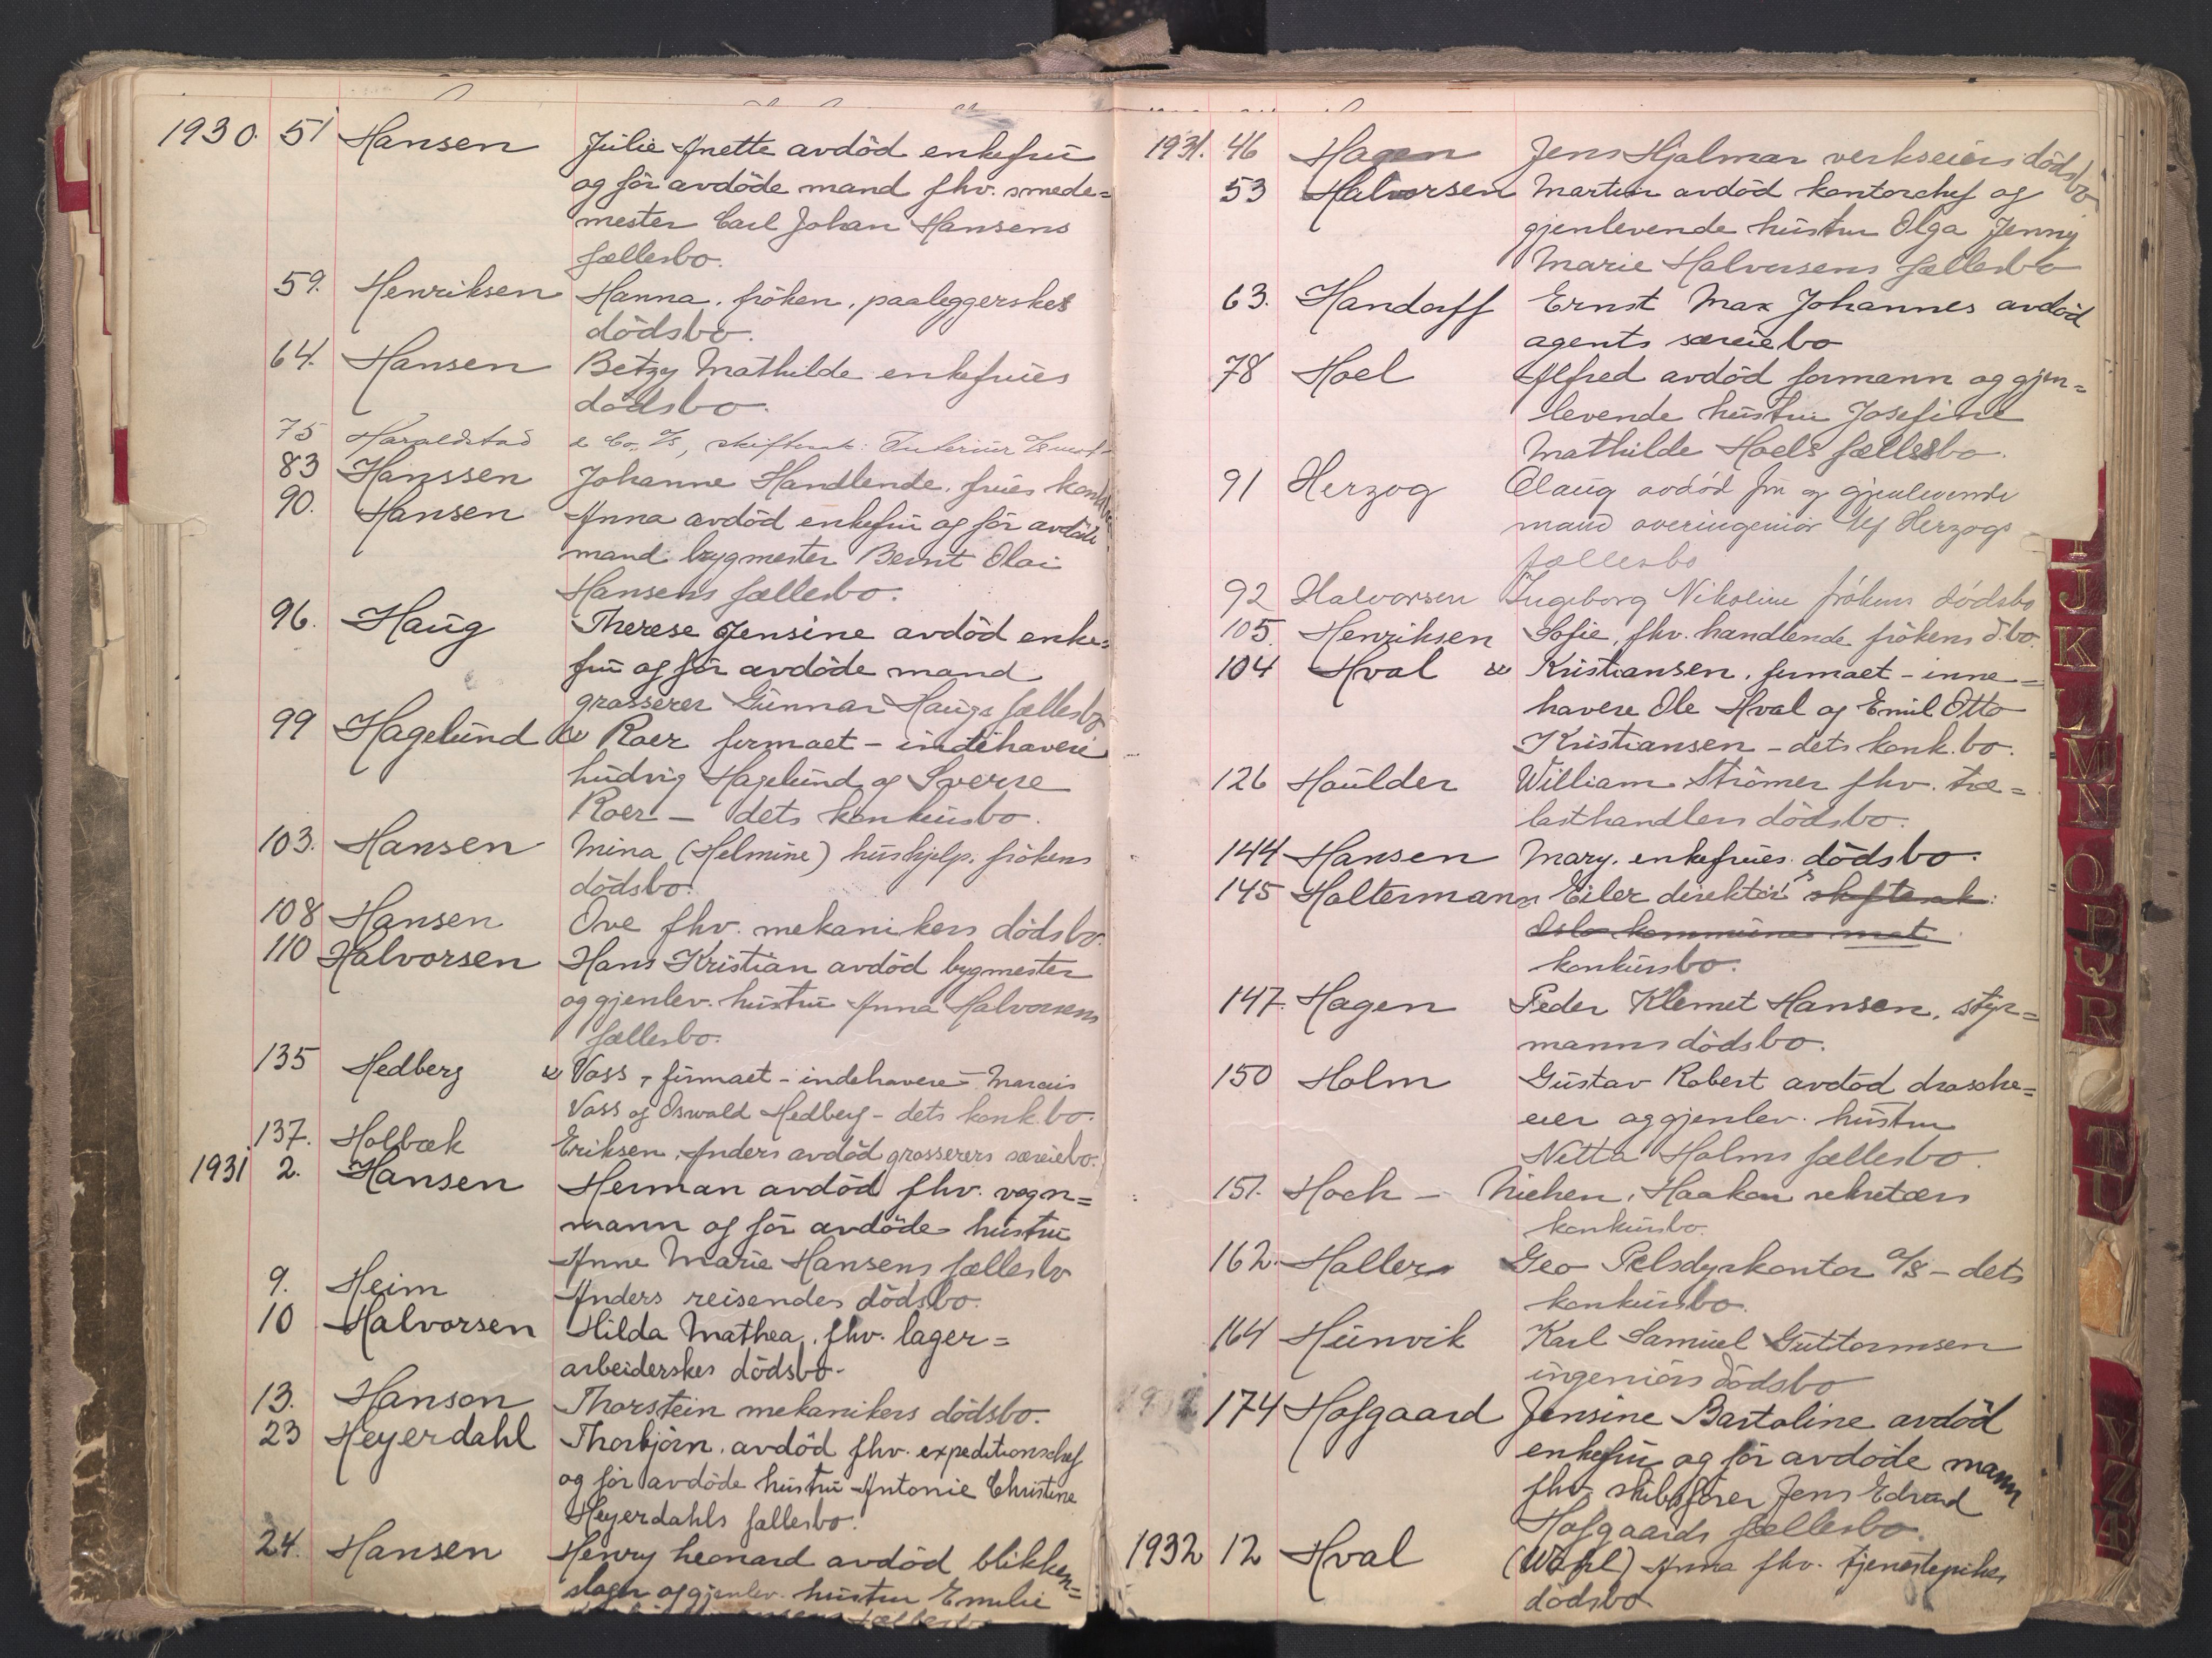 1930. 51 Hansen Julie Anette avdöd enkefrü
og för avdöde mand fhv. smede=
mester Carl Johan Hansens
fællesbo.
59. Henriksen Hanna, fröken, paaleggerskes
dödsbo.
64. Hansen Betzy Mathilde enkefrües
dödsbo.
75 Haraldstad & Co. A/s, skifteut: Interiør
83 Hanssen Johanne Handlende, frües
90. Hansen Anna avdöd enkefrü og för avdöde
mand bygmester Bernt Olai
Hansens fællesbo.
96. Haüg Therese Jensine avdöd enke=
frü og för avdöde mand
grosserer Günnar Haügs fællesbo
99 Hagelünd & Roer firmaet - indehavere
Lüdvig Hagelünd og Sverre
Roer - dets konkürsbo.
103. Hansen Mina (Helmine) hüshjelp, frökens
dödsbo.
108 Hansen Ove fhv. mekanikers dödsbo.
110 Halvorsen Hans Kristian avdöd bygmester
og gjenlev. hüstrü Anna Halvorsens
fællesbo.
135 Hedberg & Voss, firmaet - indehavere
Voss og Oswald Hedberg - dets konk.bo.
137. Holbæk Eriksen, Anders avdöd grosserers særeiebo.
1931 2. Hansen Herman avdöd fhv. vogn=
mann og för avdöde hüstrü
Anne Marie Hansens fællesbo
9. Heim Anders reisendes dödsbo.
10 Halvorsen Hilda Mathea, fhv. lager=
arbeiderskes dödsbo.
13. Hanson Thorstein mekanikers dödsbo.
23 Heyerdahl Thorbjörn, avdöd fhv. expeditionschef
og för avdöde hüstrü Antonie Christine
Heyerdahls fællesbo.
24. Hansen Henry Leonard avdöd blikken=
slager og gjenlev. hüstrü Emilie
fællesbo
1931. 46 Hagen Jens Hjalmar verkseiers dödsbo
53 Halvorsen Martin avdöd kontorchef og
gjenlevende hüstrü Olga Jenny
Marie Halvorsens fællesbo
63. Handorff Ernst Max Johannes avdöd
agents særeiebo
78 Hoel Alfred avdöd formann og gjen=
levende hüstrü Josefine
Mathilde Hoels fællesbo.
91 Herzog Olaug avdöd frü og gjenlevende
mand overingeniör Herzogs
fællesbo
92 Halvorsen Ingeborg Nikoline frökens dödsbo
105. Henriksen Sofie, fhv. handlende frökens d.bo.
104 Hval & Kristiansen, firmaet - inne=
havere Ole Hval og Emil Otto
Kristiansen - dets konk.bo.
126 Haülder William Strömer fhv. træ=
lasthandlers dödsbo.
144 Hansen Mary, enkefrües dödsbo.
145 Haltermann Eiler direktörs skifteut:
Oslo kommünes mat.
konkürsbo.
147. Hagen Peder Klemet Hansen, styr=
manns dödsbo.
150 Holm Güstav Robert avdöd drosche=
eier og gjenlev. hüstrü
Netta Holms fællesbo.
151. Hoch - Nielsen, Haakon sekretærs
konkürsbo.
162. Hallers Geo Pelsdyrkontor A/S - dets
konkürsbo.
164 Hünvik Karl Samüel Güttormsen
ingeniörs dödsbo
174 Hofgaard Jensine Bartoline avdöd
enkefrü og för avdöde mann
fhv. skibsförer Jens Edvard
Hofgaards fællesbo.
1932 12 Hval (Wahl) Anna fhv. tjenestepikes
dödsbo
J
K
L
M
N
O
P
Q
R
T
U
Y
Z